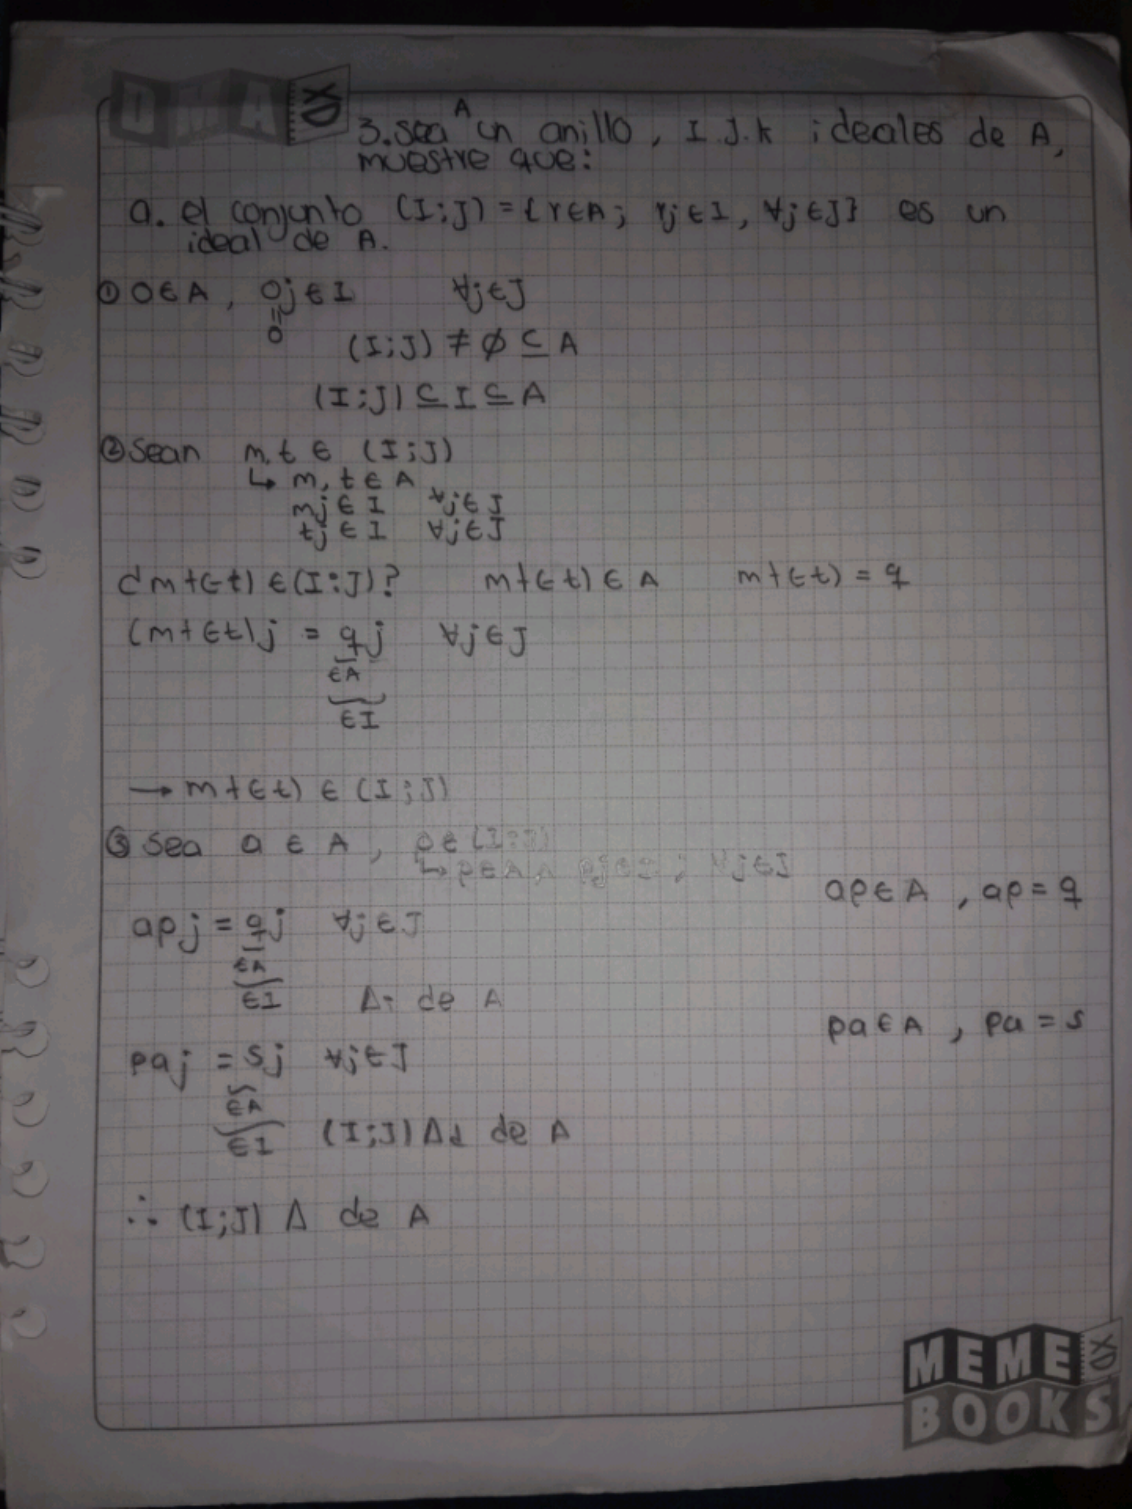 DMA XD
3. sea A un anillo, I.J.K ideales de A,
muestre que:
a. el conjunto (I;J) = {r∈A; rj∈I, ∀j∈J} es un
ideal de A.
① 0∈A, 0j∈I ∀j∈J
=
0
(I;J) ≠ ∅ ⊆ A
(I;J) ⊆ I ⊆ A
② Sean m,t ∈ (I;J)
↳ m, t ∈ A
mj ∈ I ∀j∈J
tj ∈ I ∀j∈J
¿m+(-t) ∈ (I:J)? m+(-t) ∈ A m+(-t) = q
(m+(-t)) j = qj ∀j∈J
∈A
∈I
→ m+(-t) ∈ (I;J)
③ Sea a ∈ A, p∈(I:J)
↳ p∈A ∀j∈J
ap∈A, ap = q
apj = qj ∀j∈J
∈A
∈I Δi de A
pa∈A, pa = s
paj = sj ∀j∈J
∈A
∈I (I;J) Δd de A
∴ (I;J) Δ de A
MEME XD
BOOKS